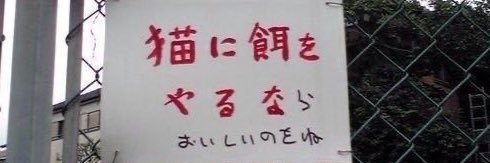 猫に餌を
やるなら
おいしいのをね